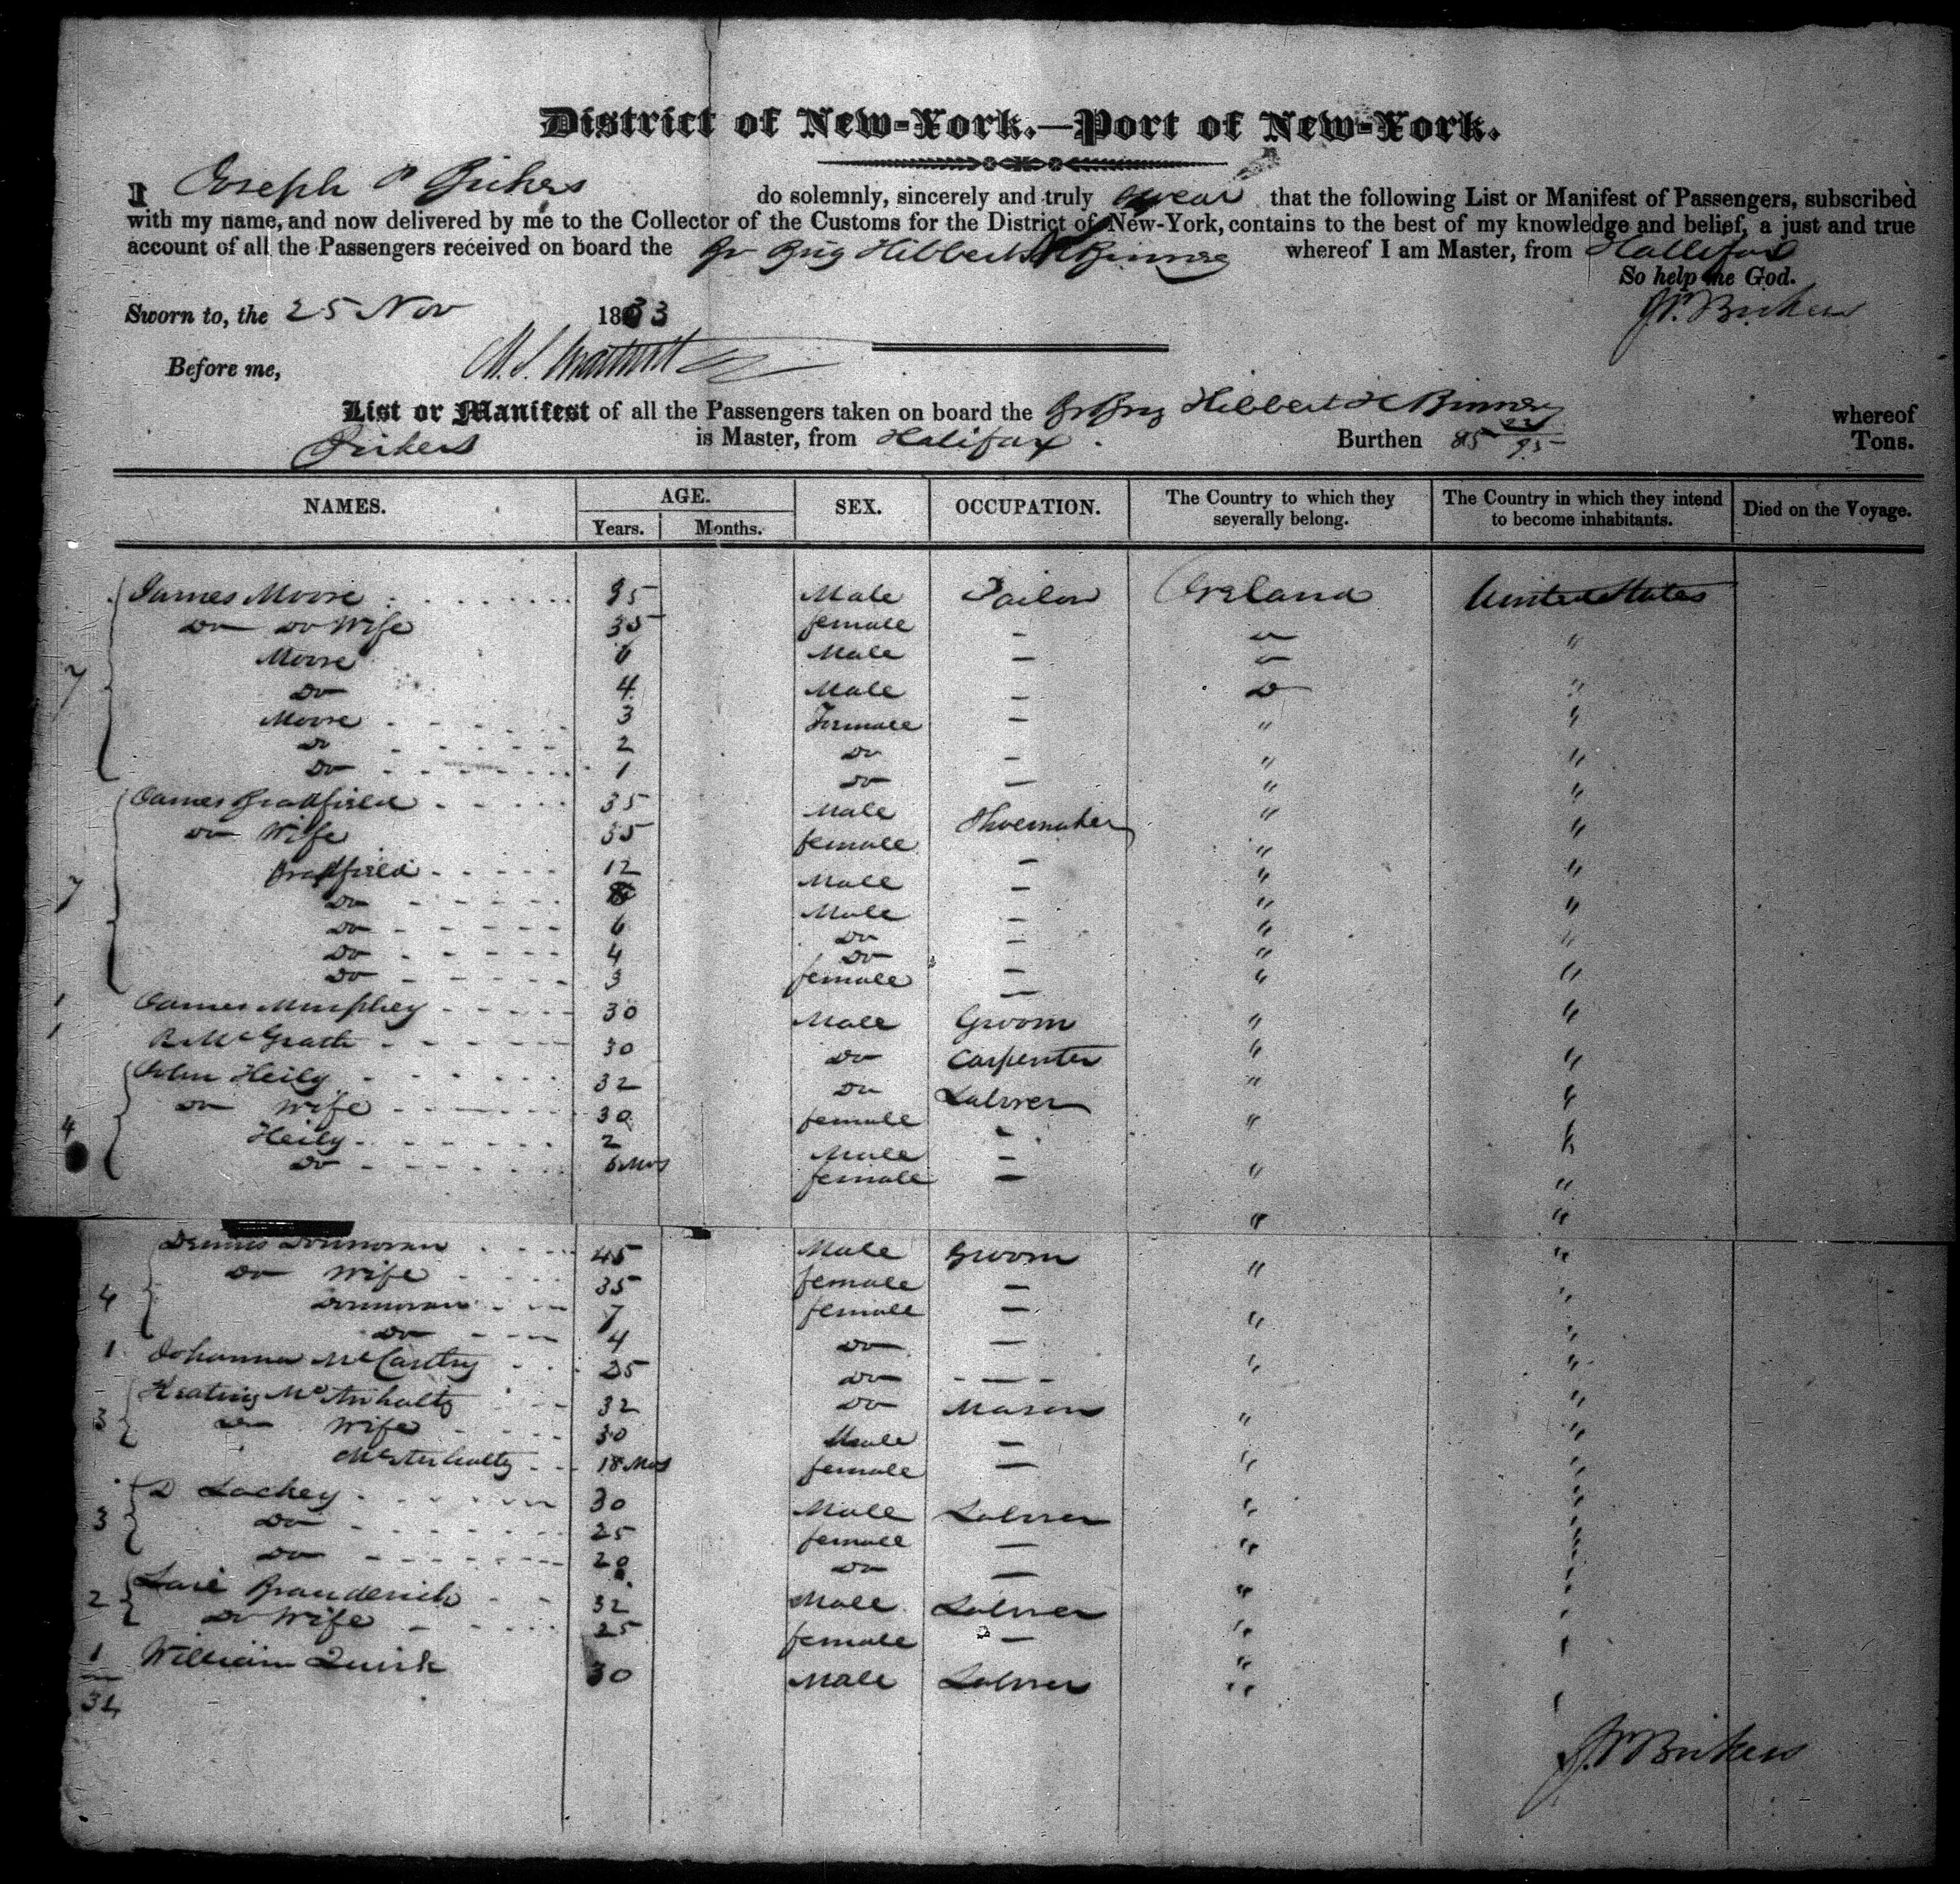 District of New-York.—Port of New-York.
I Joseph P Bickers do solemnly, sincerely and truly swear that the following List or Manifest of Passengers, subscribed
with my name, and now delivered by me to the Collector of the Customs for the District of New-York, contains to the best of my knowledge and belief, a just and true
account of all the Passengers received on board the Br Brig Hibbert & Binney whereof I am Master, from Hallifax
So help me God.
Sworn to, the 25 Nov 1833
Before me,
List or Manifest of all the Passengers taken on board the Br Brig Hibbert & Binney whereof
Bickers is Master, from Halifax. Burthen 85 22/95 Tons.
NAMES. AGE. SEX. OCCUPATION. The Country to which they severally belong. The Country in which they intend to become inhabitants. Died on the Voyage.
Years. Months.
James Moore 35 Male Tailor Ireland United States
Do Do Wife 35 female - " "
7 Moore 6 Male - "
Do 4 Male - Do "
Moore 3 Female - " "
Do 2 Do - " "
Do 1 Do - " "
James Bradfield 35 Male Shoemaker " "
Do Wife 35 female - " "
Bradfield 12 Male - " "
7 Do Male - " "
Do 6 Do - " "
Do 4 Do - " "
Do 3 female - " "
1 James Murphey 30 Male Groom " "
1 B McGrath 30 Do Carpenter " "
John Heily 32 Do Labrer " "
Do Wife 30 female - " "
4 Heily 2 Male - " "
Do 6 Mos female - " "
Dennis Donnovan 45 Male Groom " "
Do Wife 35 female - "
4 Donnovan 7 female - " "
Do 4 Do - " "
1 Johanna McCarthy 25 Do - - - "
Keating 32 Do Mason " "
3 Do Wife 30 Male - " "
18 Mos female - " "
D Lackey 30 Male Labrer " "
3 Do 25 female - " "
Do 20 Do - " "
2 Brauderick 32 Male Labrer " "
Do Wife 25 female - " "
1 William Quirk 30 Male Labrer " "
34